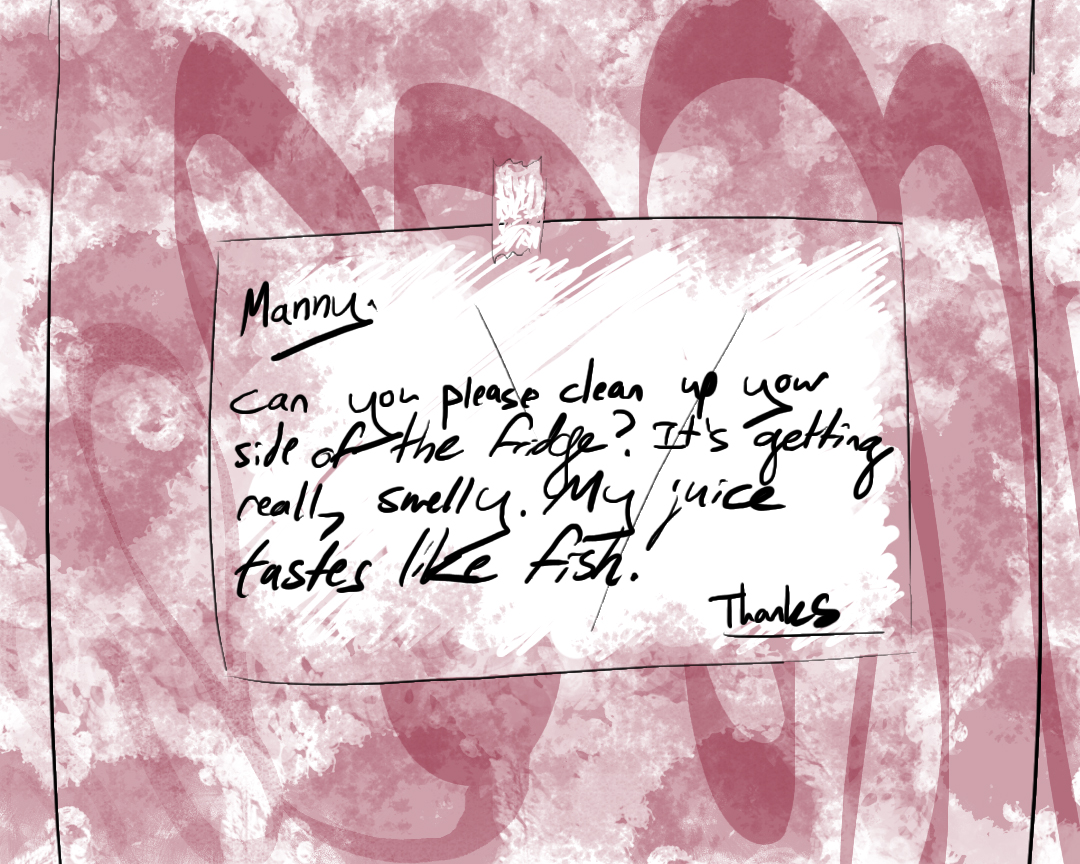 Manny.
Can you please clean up your
side of the fridge? It's getting
really smelly. My juice
tastes like fish.
Thanks